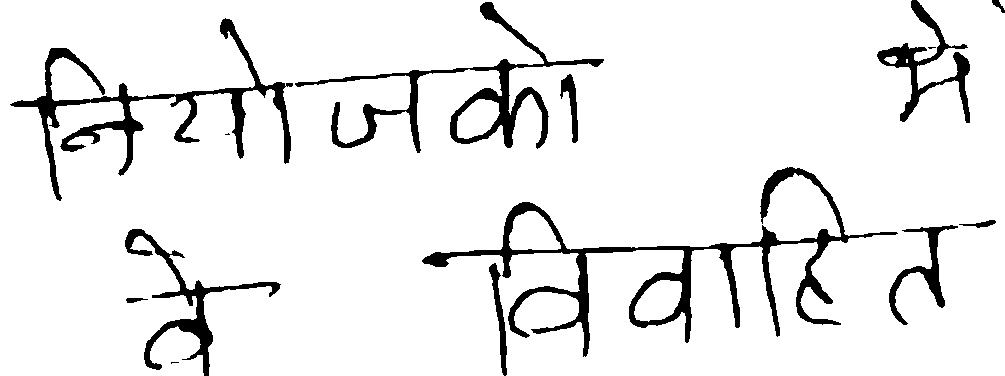 नियोजको मे
वे विवाहित